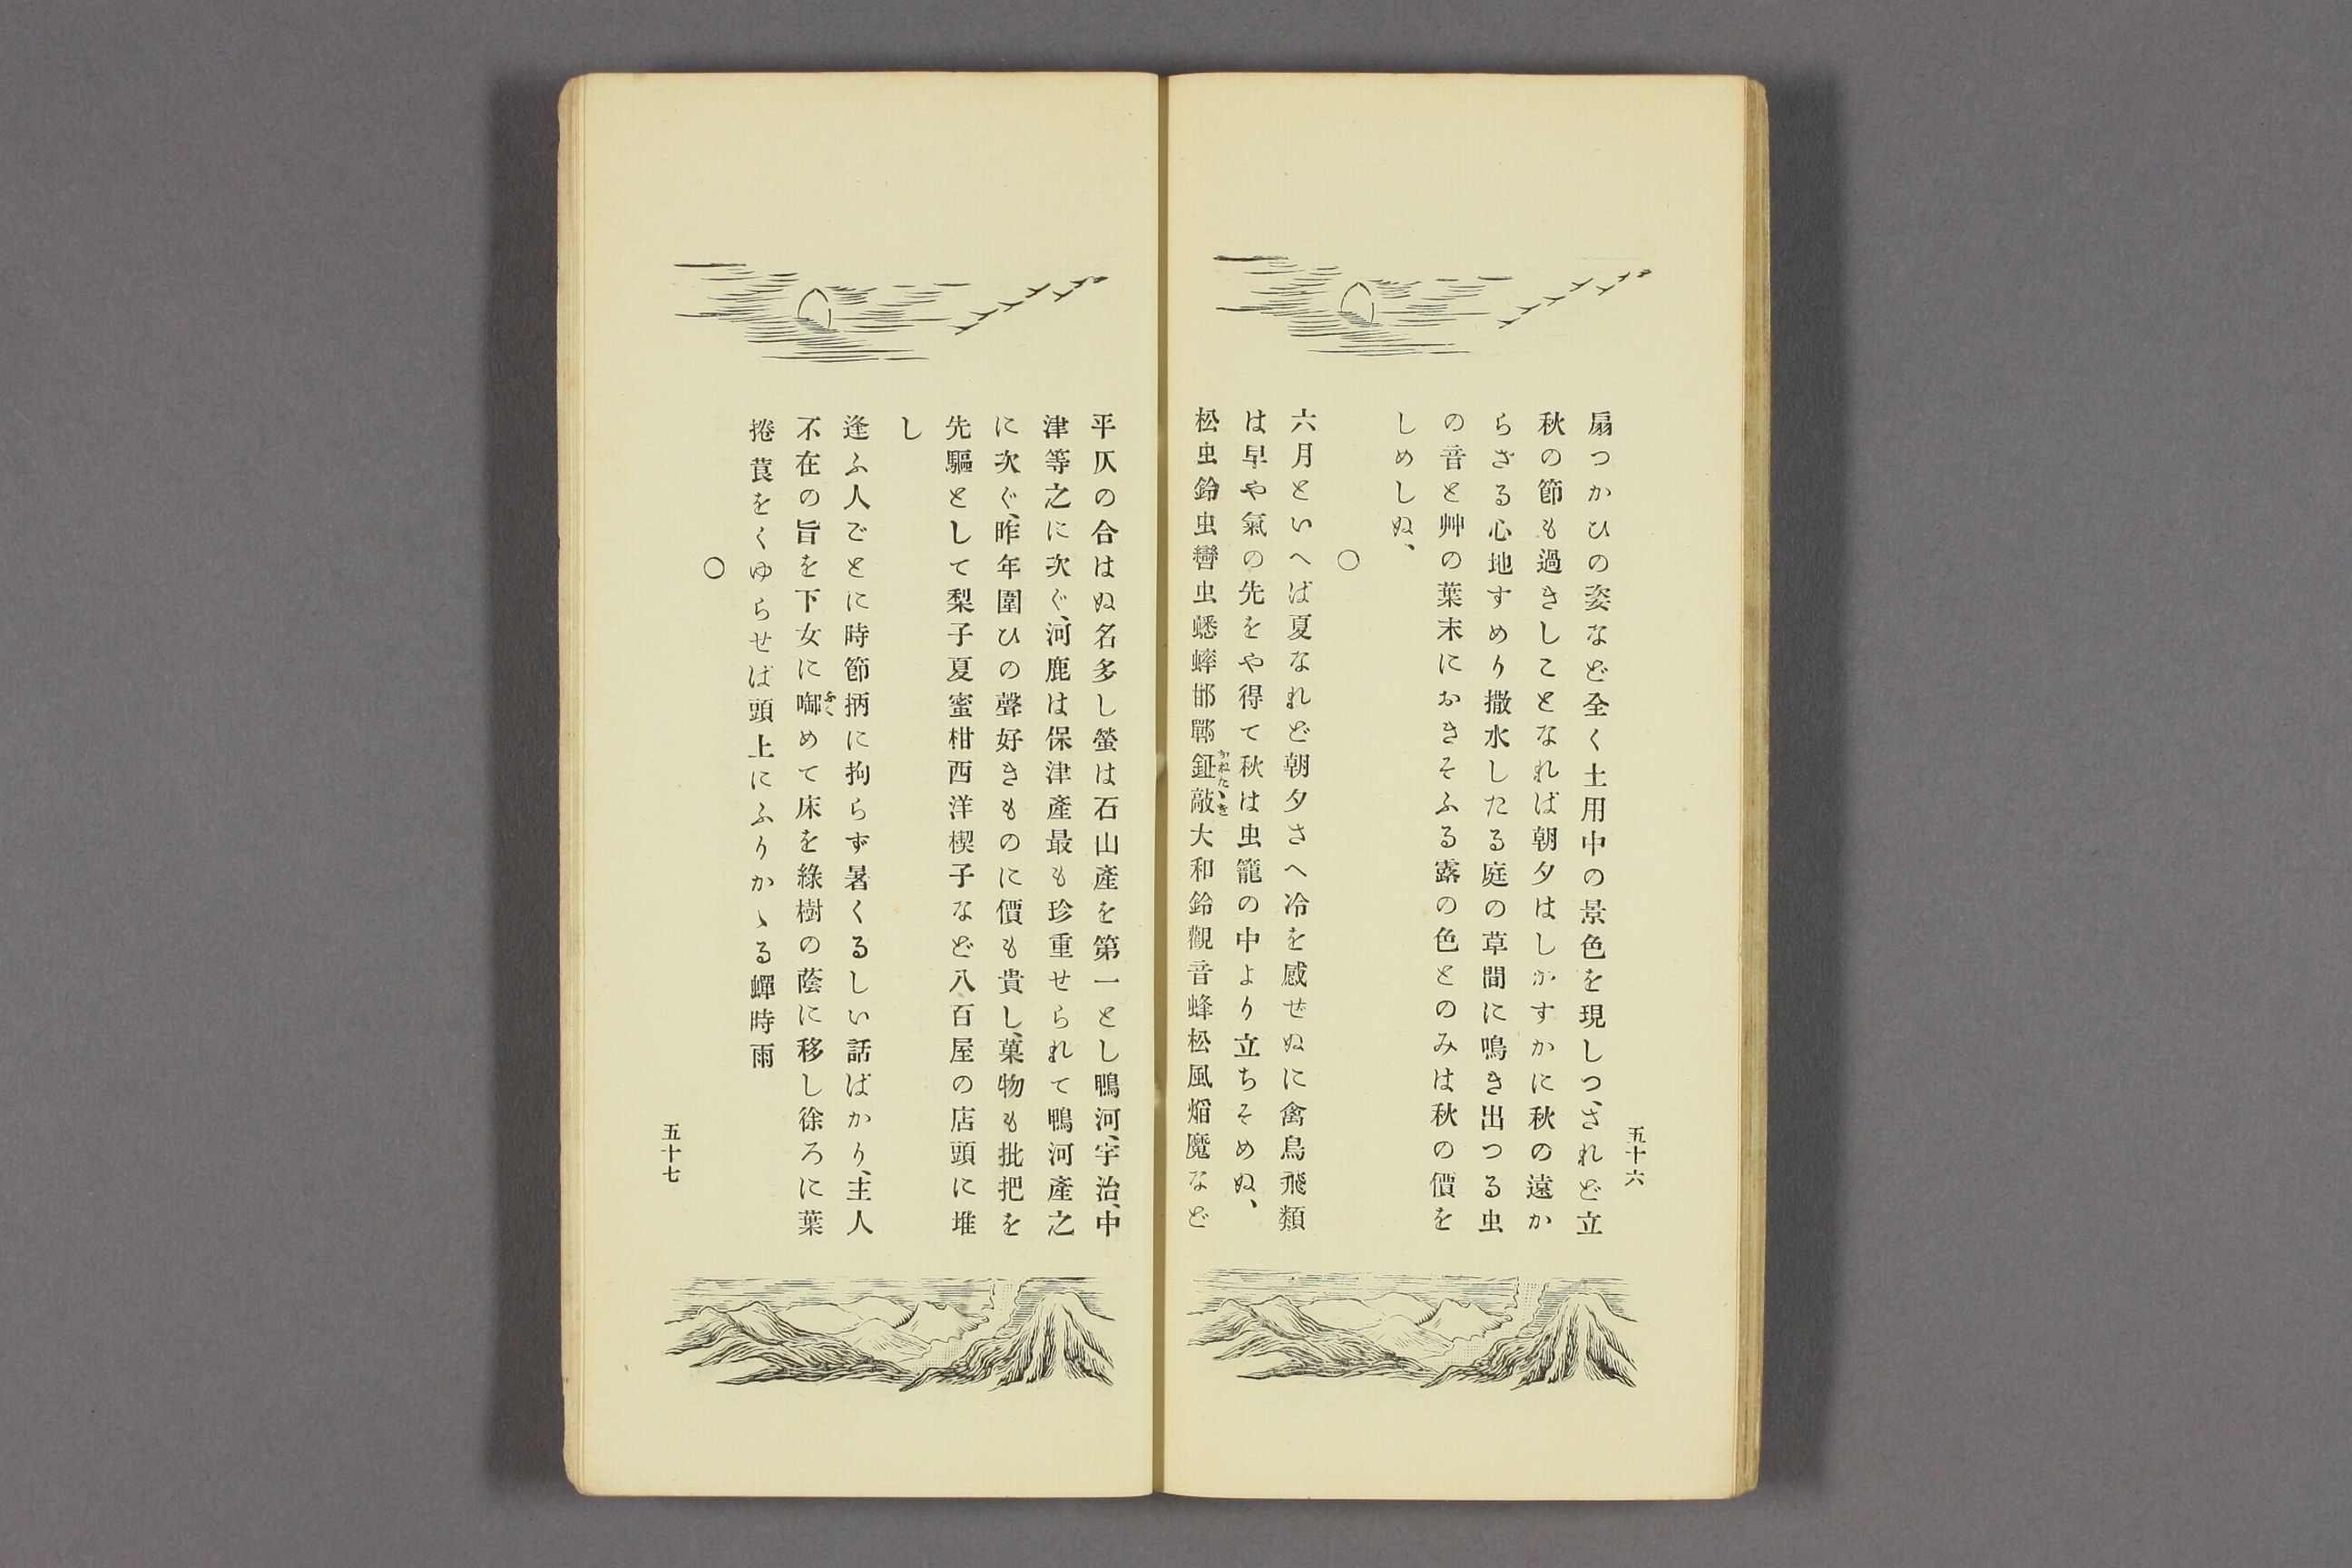 扇つかひの姿など全く土用中の景色を現しつ、されど立
秋の節も過きしことなれば朝夕はしかすかに秋の遠か
らざる心地すめり撒水したる庭の草間に鳴き出つる虫
の音と艸の葉末におきそふる露の色とのみは秋の價を
しめしぬ、
○
六月といへば夏なれど朝夕さへ冷を感ぜぬに禽鳥飛類
は早や氣の先をや得て秋は虫籠の中より立ちそめぬ、
松虫鈴虫轡虫蟋蟀邯鄲鉦敲大和鈴觀音蜂松風焔魔など
かねたゝき
五十六
平仄の合はぬ名多し螢は石山產を第一とし鴨河、宇治、中
津等之に次ぐ、河鹿は保津產最も珍重せられて鴨河產之
に次ぐ、昨年圍ひの聲好きものに價も貴し、菓物も批把を
先驅として梨子夏蜜柑西洋楔子など八百屋の店頭に堆
し
逢ふ人ごとに時節柄に拘らず暑くるしい話ばかり、主人
不在の旨を下女に啣めて床を綠樹の蔭に移し徐ろに葉
ふく
捲莨をくゆらせば頭上にふりかゝる蟬時雨
○
五十七